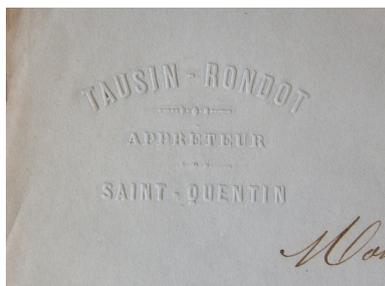 TAUSIN - RONDOT
APPRÊTEUR
SAINT - QUENTIN